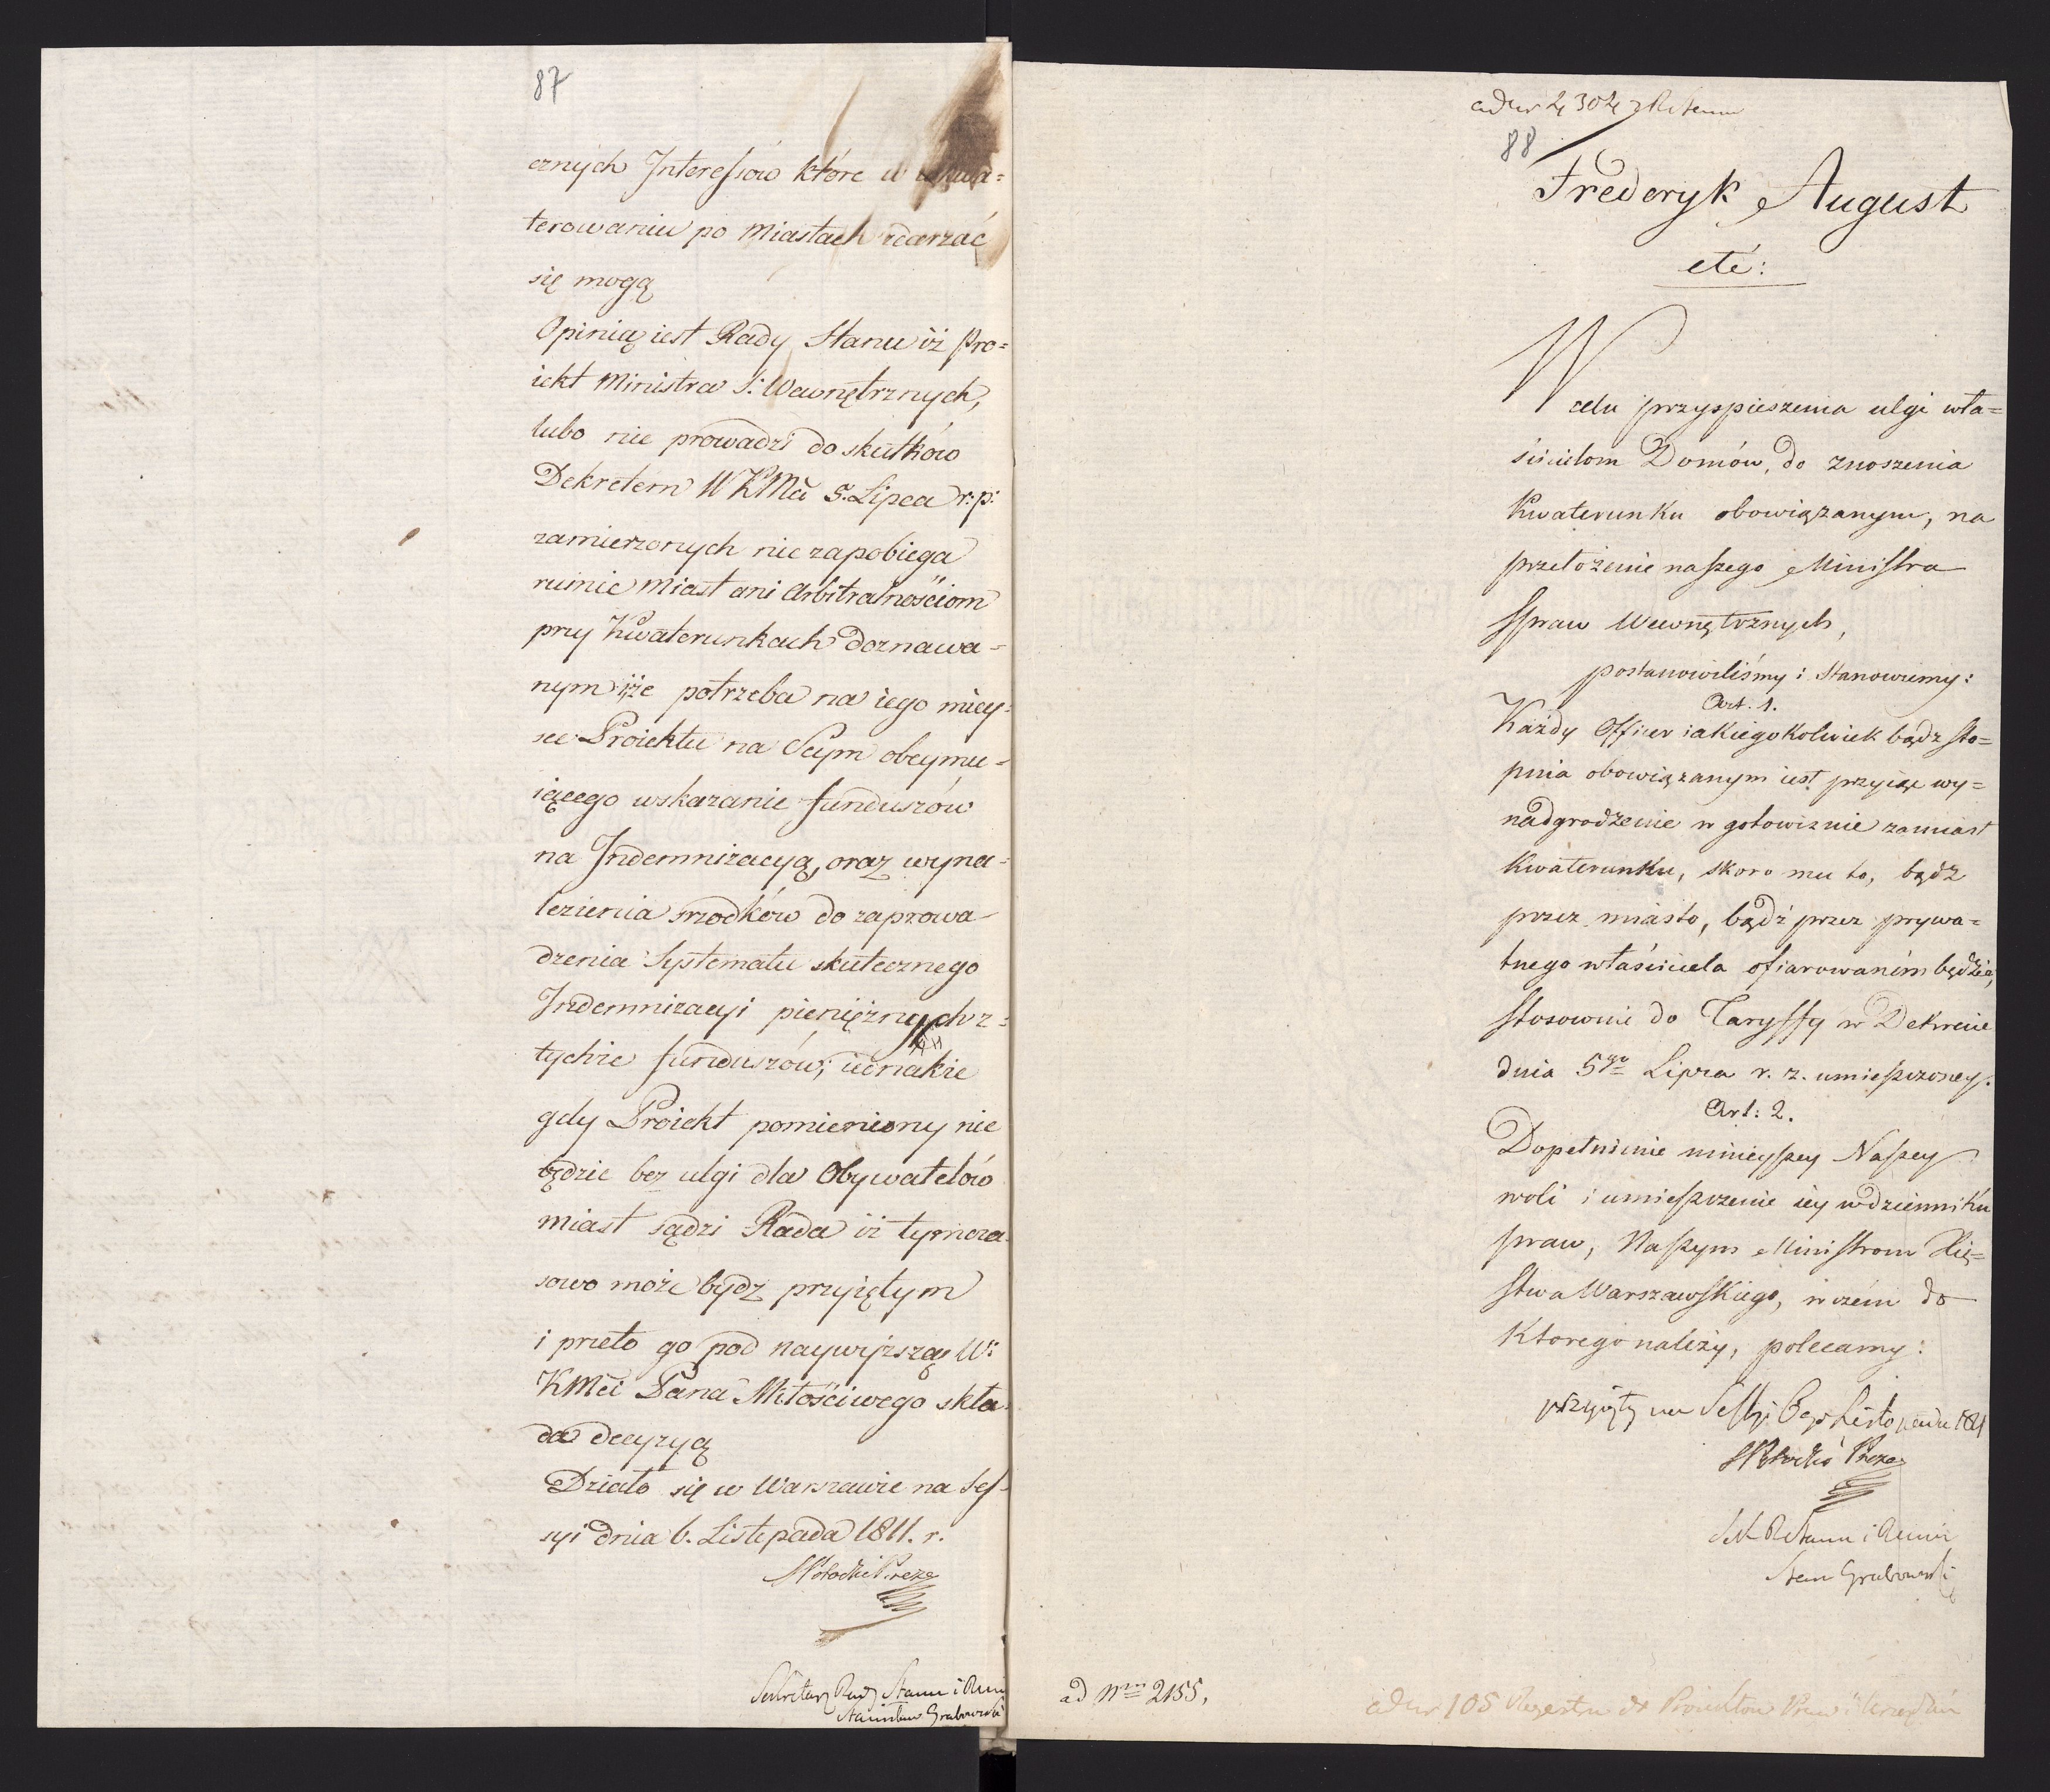 87
cznych Interessów które w kwa=
terowaniu po Miastach zdarzać
się mogą
Opinią iest Rady Stanu iż Pro=
iekt Ministra S: Wewnętrznych,
lubo nie prowadzi do skutków
Dekretem WKMci 5. Lipca r: p:
zamierzonych nie zapobiega
ruinie Miast ani Arbitralnościom
przy Kwaterunkach doznawa=
nym iże potrzeba na iego miey=
sce Proiektu na Seym obeymu=
iącego wskazanie funduszów
na Indemnizacyą, oraz wyna=
lezienia srzodków do zaprowa=
dzenia Systematu skutecznego
Indemnizacyi pieniężnych z=
tychże funduszów; iednakże
gdy Proiekt pomieniony nie
będzie bez ulgi dla Obywatelów
miast sądzi Rada iż tymcza=
sowo może bydź przyiętym
i przeto go pod naywyższą W:
KMci Pana Miłościwego skła=
da decyzyą
Działo się w Warszawie na Ses=
syi dnia 6. Listopada 1811. r.
SPotocki Prezes
Sekretarz Rady Stanu i Min
Stanisław Grabowski
ad Nr 4304 R Stanu
88
Frederyk August
etc:
W celu przyspieszenia ulgi wła=
ścicielom Domów, do znoszenia
Kwaterunku obowiązanym, na
przełożenie naszego Ministra
Spraw Wewnętrznych,
postanowiliśmy i Stanowiemy:
Art. 1.
Każdy Officer iakiegokolwiek bądz sto=
pnia obowiązanym iest przyiąc wy=
nadgrodzenie w gotowiznie zamiast
Kwaterunku, skoro mu to, bądz
przez miasto, bądź przez prywa=
tnego właściciela ofiarowaném będzie,
stosownie do Taryffy w Dekrecie
dnia 5go Lipca r. z. umieszczoney.
Art: 2.
Dopełnienie ninieyszey Naszey
woli i umieszczenie iey w dzienniku
praw, Naszym Ministrom Xię=
stwa Warszawskiego, w czém do
Ktorego należy, polecamy:
przyięty na Sessyi 6go Listopada 1811
SPotocki Prezes
Sek R Stanu i Min
Stan Grabowski
ad Nrum 2155,
ad Nr 105 Regestru do Proiektow Praw i Urządzeń